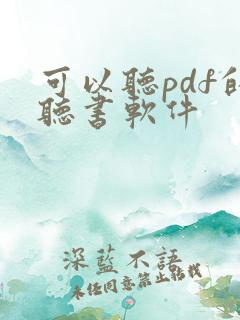 可以聽pdf的
聽書軟件
深藍不語
未任同意禁止轉載